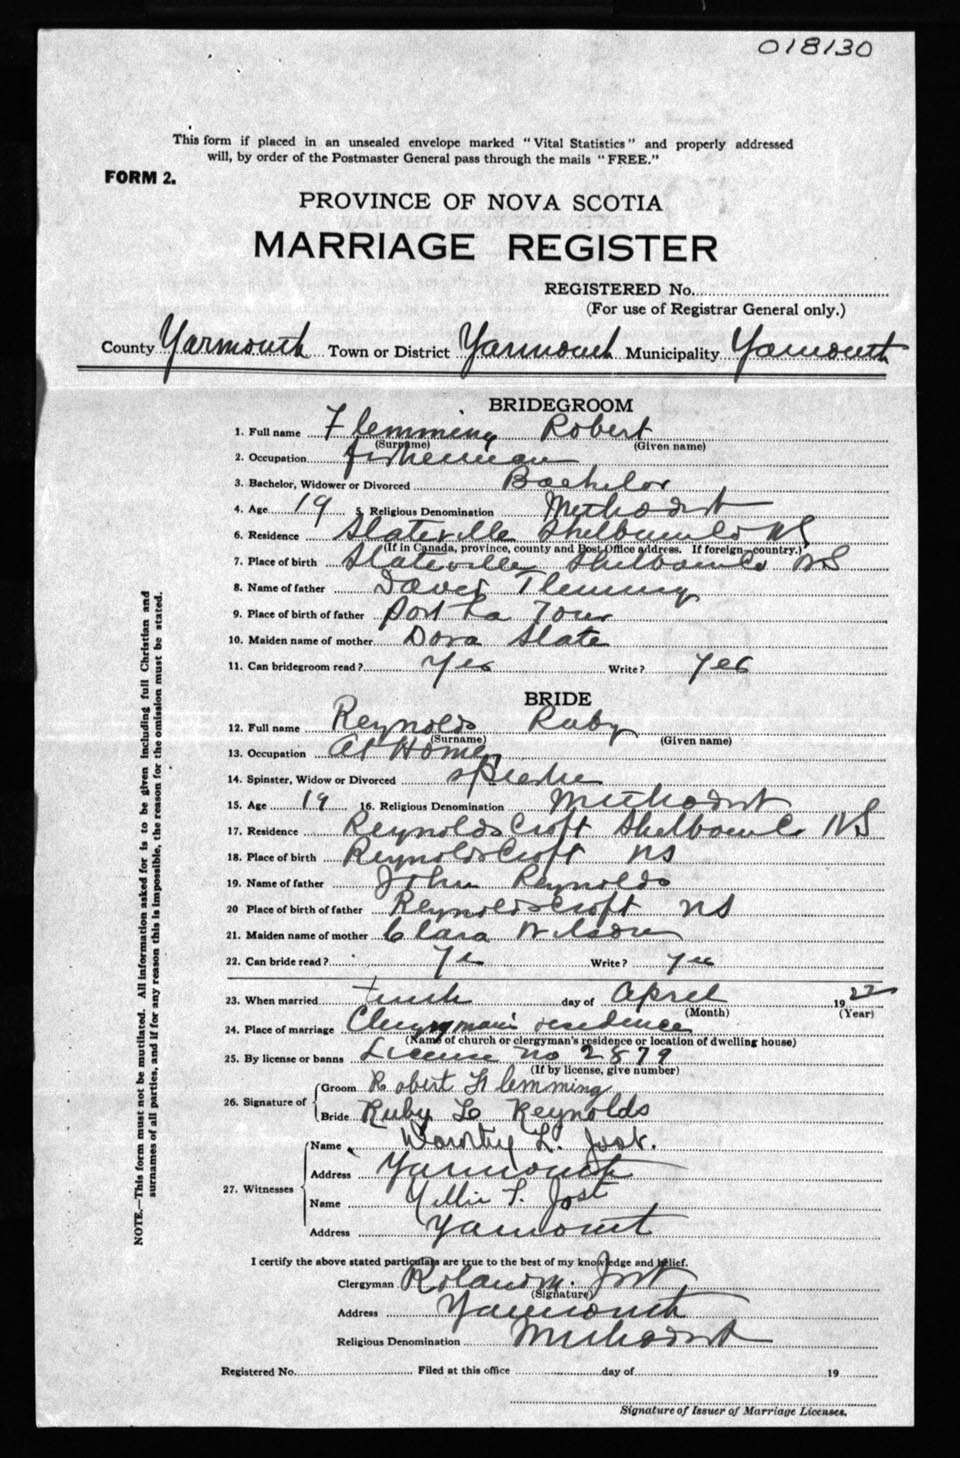 018130
This form if placed in an unsealed envelope marked "Vital Statistics" and properly addressed
will, by order of the Postmaster General pass through the mails "FREE."
FORM 2.
PROVINCE OF NOVA SCOTIA
MARRIAGE REGISTER
REGISTERED No.
(For use of Registrar General only.)
County Yarmouth Town or District Yarmouth Municipality Yamouth
BRIDEGROOM
1. Full name Flemming Robert
(Surname) (Given name)
2. Occupation fisherman
3. Bachelor, Widower or Divorced Bachelor
4. Age 19 5. Religious Denomination Methodist
6. Residence Slateville Shelburn Co NS
(If in Canada, province, county and Post Office address. If foreign—country.)
7. Place of birth Slateville Shelburn Co NS
8. Name of father Fleming
9. Place of birth of father Port La Tour
10. Maiden name of mother Dora Slate
11. Can bridegroom read? Yes Write? Yes
BRIDE
12. Full name Reynolds Ruby
(Surname) (Given name)
13. Occupation At Home
14. Spinster, Widow or Divorced
15. Age 19 16. Religious Denomination Methodist
17. Residence Reynolds Croft Shelburn Co NS
18. Place of birth Reynoldscroft NS
19. Name of father John Reynolds
20 Place of birth of father Reynoldscroft NS
21. Maiden name of mother Clara Wilson
22. Can bride read? Write? Yes
23. When married tenth day of April 1922
(Month) (Year)
24. Place of marriage Clergyman's residence
(Name of church or clergyman's residence or location of dwelling house)
25. By license or banns License no 2879
(If by license, give number)
26. Signature of Groom Robert Flemming
Bride Ruby L Reynolds
27. Witnesses Name Dorothy L. Jost.
Address Yarmouth
Name Nellie F. Jost
Address Yamout
I certify the above stated particulars are true to the best of my knowledge and belief.
Clergyman Roland M. Jost
(Signature)
Address Yarmouth
Religious Denomination Methodist
Registered No. Filed at this office day of 19
Signature of Issuer of Marriage Licenses.
NOTE.—This form must not be mutilated. All information asked for is to be given including full Christian and
surnames of all parties, and if for any reason this is impossible, the reason for the omission must be stated.